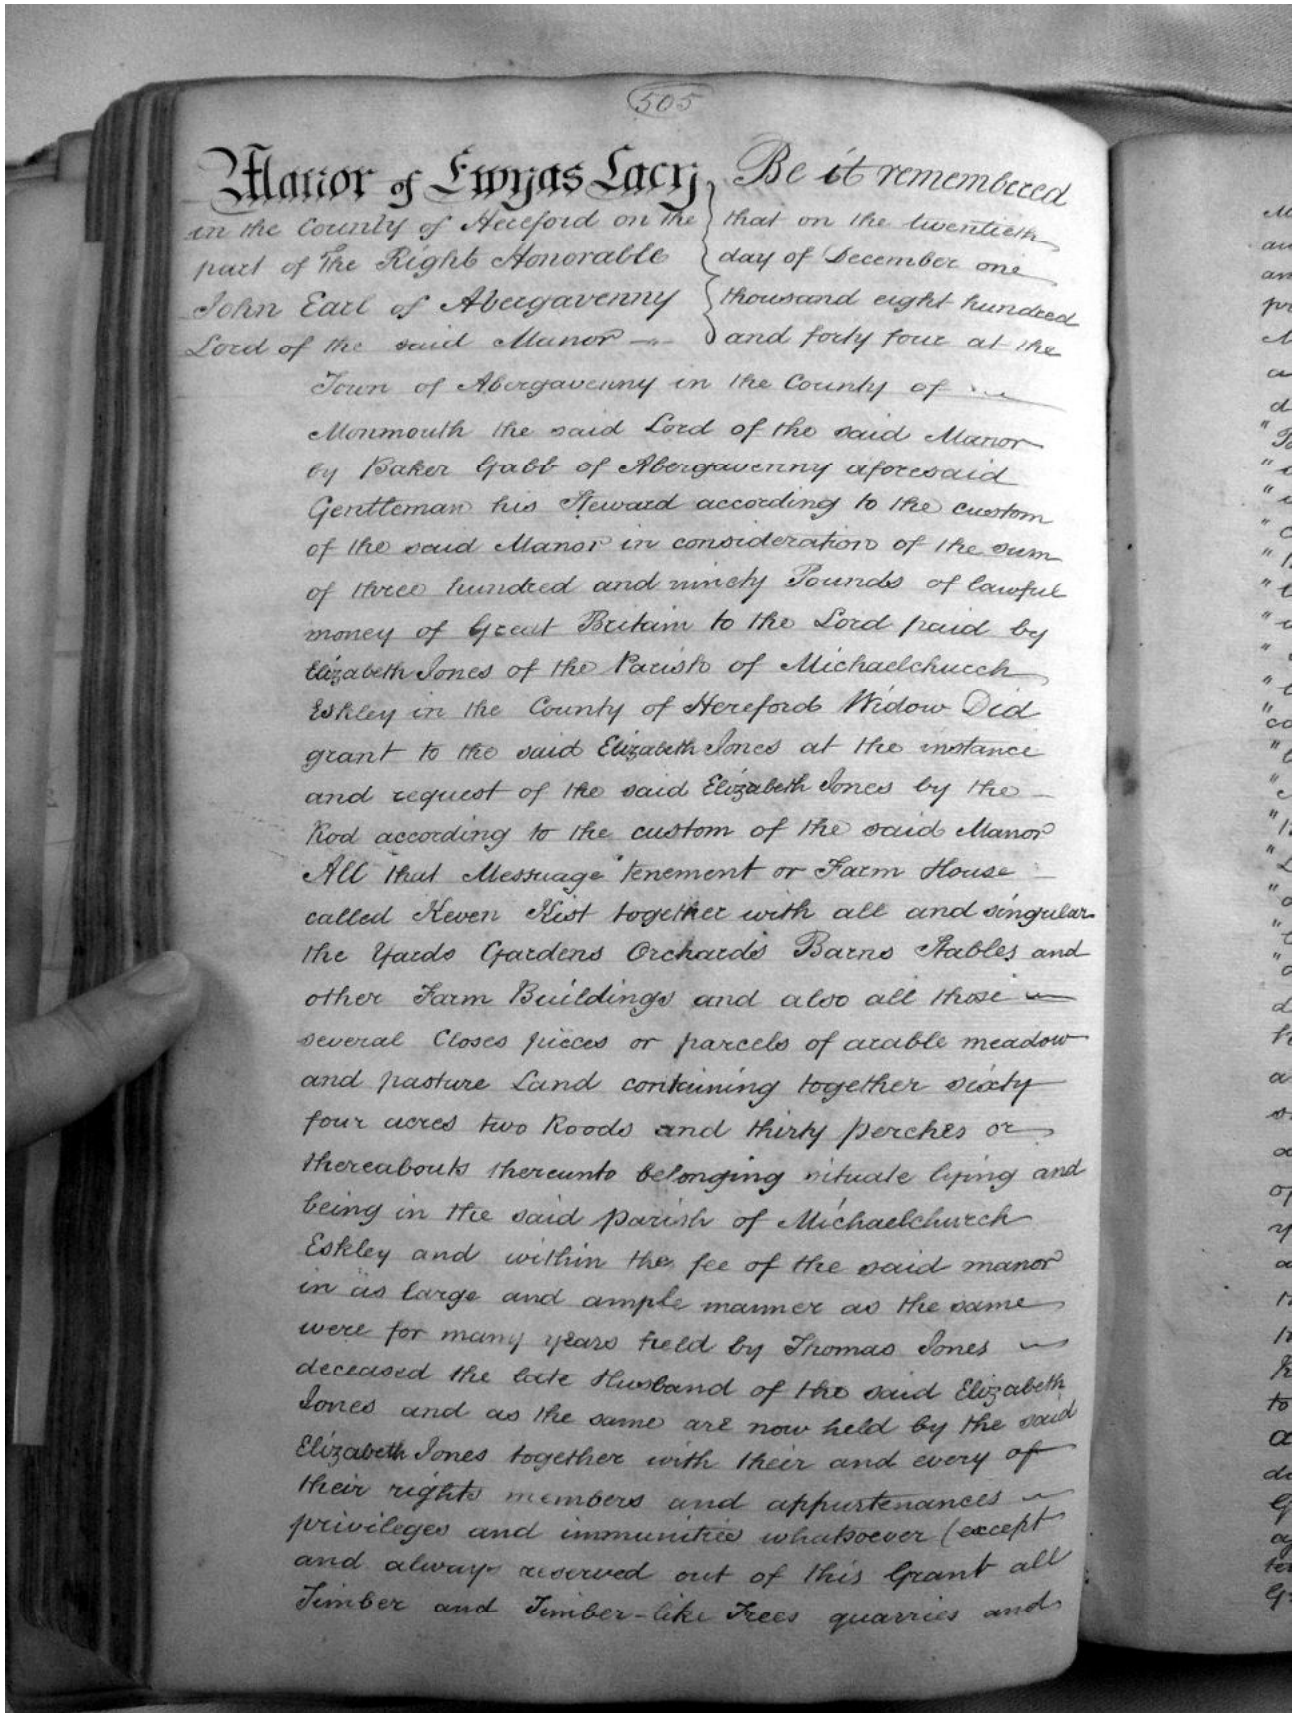 505
Manor of Ewyas Lacy
in the County of Hereford on the
part of The Right Honorable
John Earl of Abergavenny
Lord of the said Manor
Be it remembered
that on the twentieth
day of December one
thousand eight hundred
and forty four at the
Town of Abergavenny in the County of
Monmouth the said Lord of the said Manor
by Baker Gabb of Abergavenny aforesaid
Gentleman his Steward according to the custom
of the said Manor in consideration of the sum
of three hundred and ninety Pounds of lawful
money of Great Britain to the Lord paid by
Elizabeth Jones of the Parish of Michaelchurch
Eskley in the County of Hereford Widow Did
grant to the said Elizabeth Jones at the instance
and request of the said Elizabeth Jones by the
Rod according to the custom of the said Manor
All that Messuage tenement or Farm House
called Keven Kist together with all and singular
the Yards Gardens Orchards Barns Stables and
other Farm Buildings and also all those
several Closes pieces or parcels of arable meadow
and pasture Land containing together sixty
four acres two Roods and thirty perches or
thereabouts thereunto belonging situate lying and
being in the said parish of Michaelchurch
Eskley and within the fee of the said manor
in as large and ample manner as the same
were for many years held by Thomas Jones
deceased the late Husband of the said Elizabeth
Jones and as the same are now held by the said
Elizabeth Jones together with their and every of
their rights members and appurtenances
privileges and immunities whatsoever (except
and always reserved out of this Grant all
Timber and Timber-like Trees quarries and